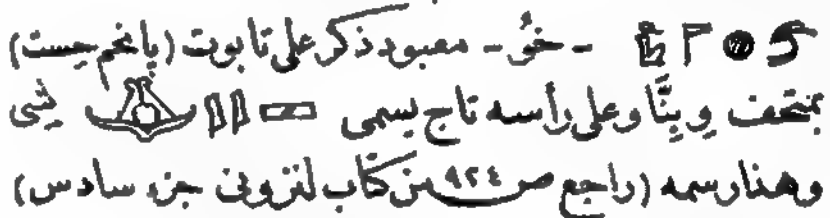 - خوُ - معبود ذكر على تابوت (پانحم حِسِت)
بمتحف وِيِنَّا وعلى رأسه تاج يسمى شى
وهذا رسمه (راجع ص ٩٢٤ من كتاب لنزونى جزء سادس)